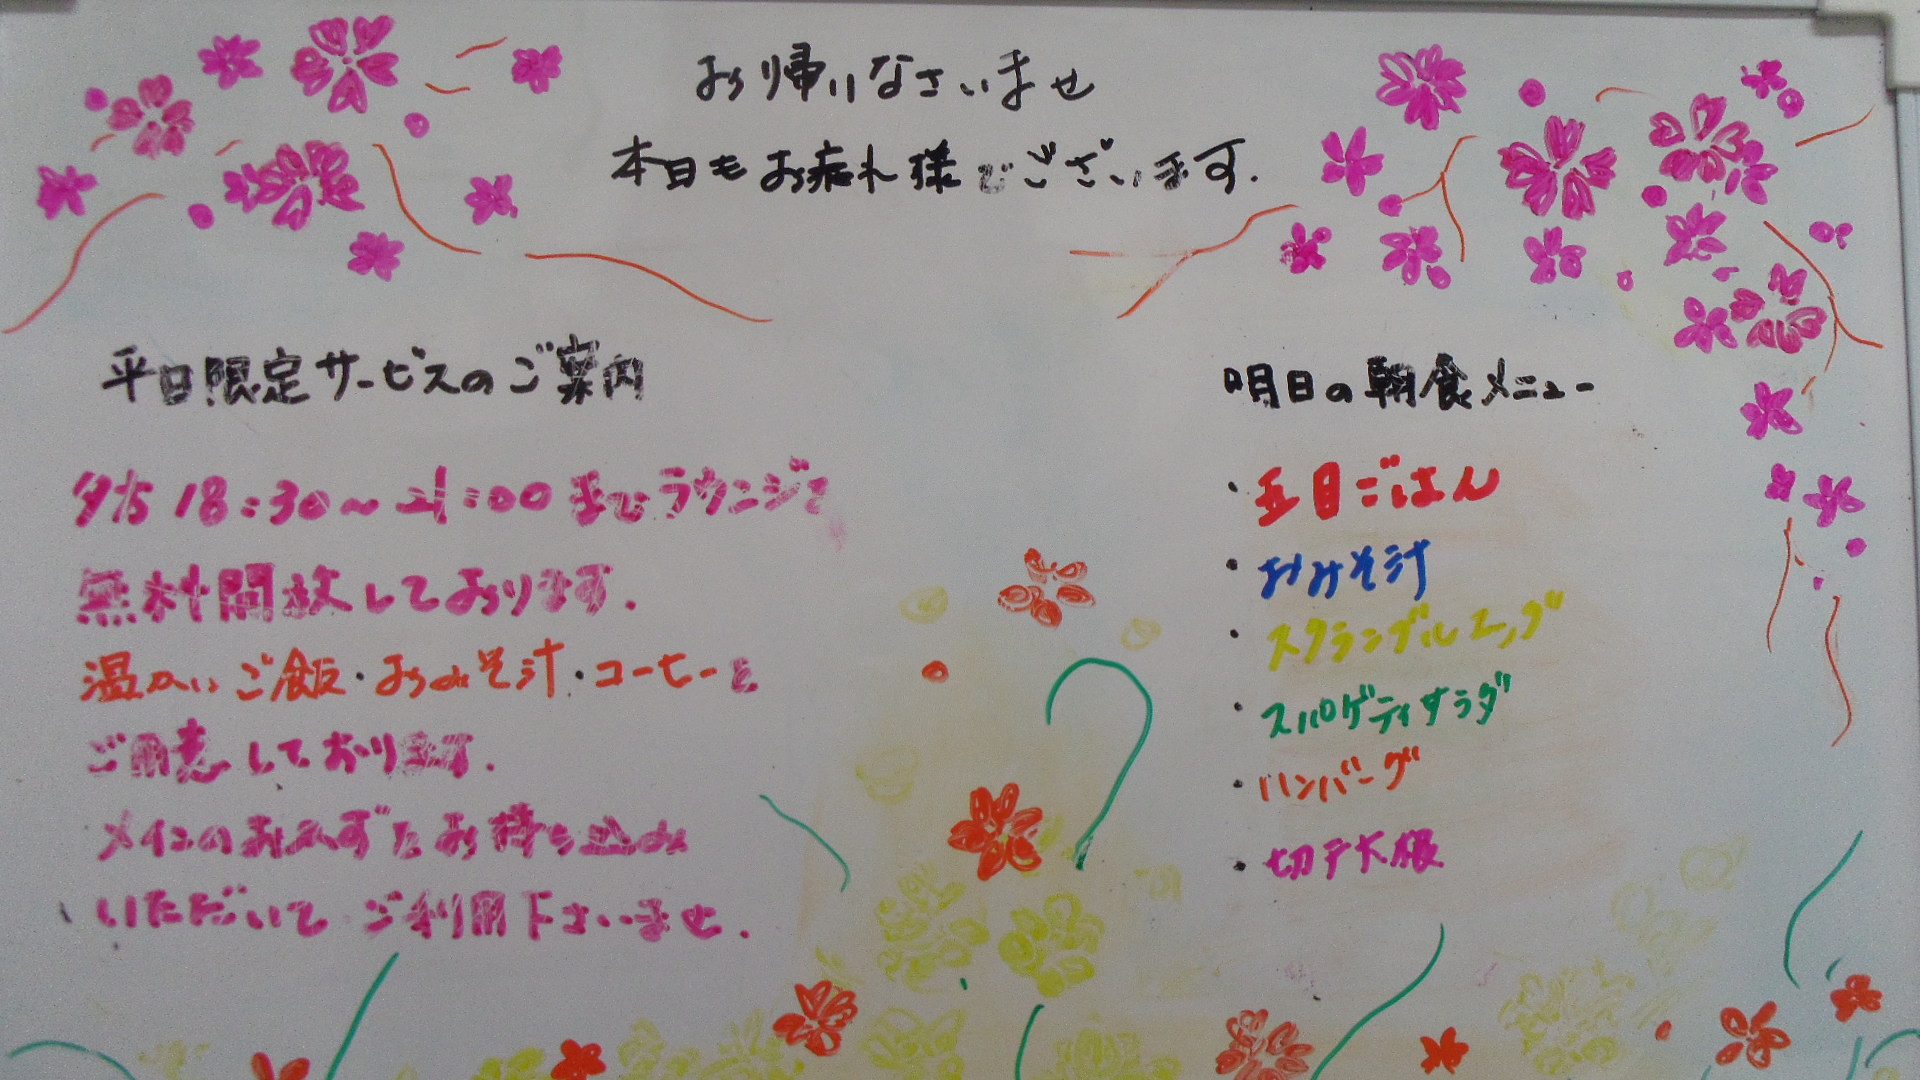 お帰りなさいませ
本日もお疲れ様でございます.
平日限定サービスのご案内
夕方18:30～21:00までラウンジを
無料開放しております.
温かいご飯・おみそ汁・コーヒーを
ご用意しております.
メインのおかずをお持ち込み
いただいてご利用下さいませ.
明日の朝食メニュー
・五目ごはん
・おみそ汁
・スクランブルエッグ
・スパゲティサラダ
・ハンバーグ
・切干大根